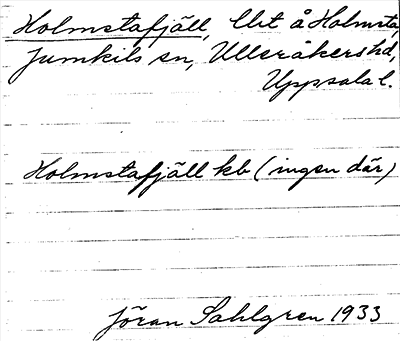 Holmstafjäll, Utt å Holmsta,
Jumkils sn, Ulleråkers hd,
Uppsala l.
Holmstafjäll kb (ingen där)
Jöran Sahlgren 1933